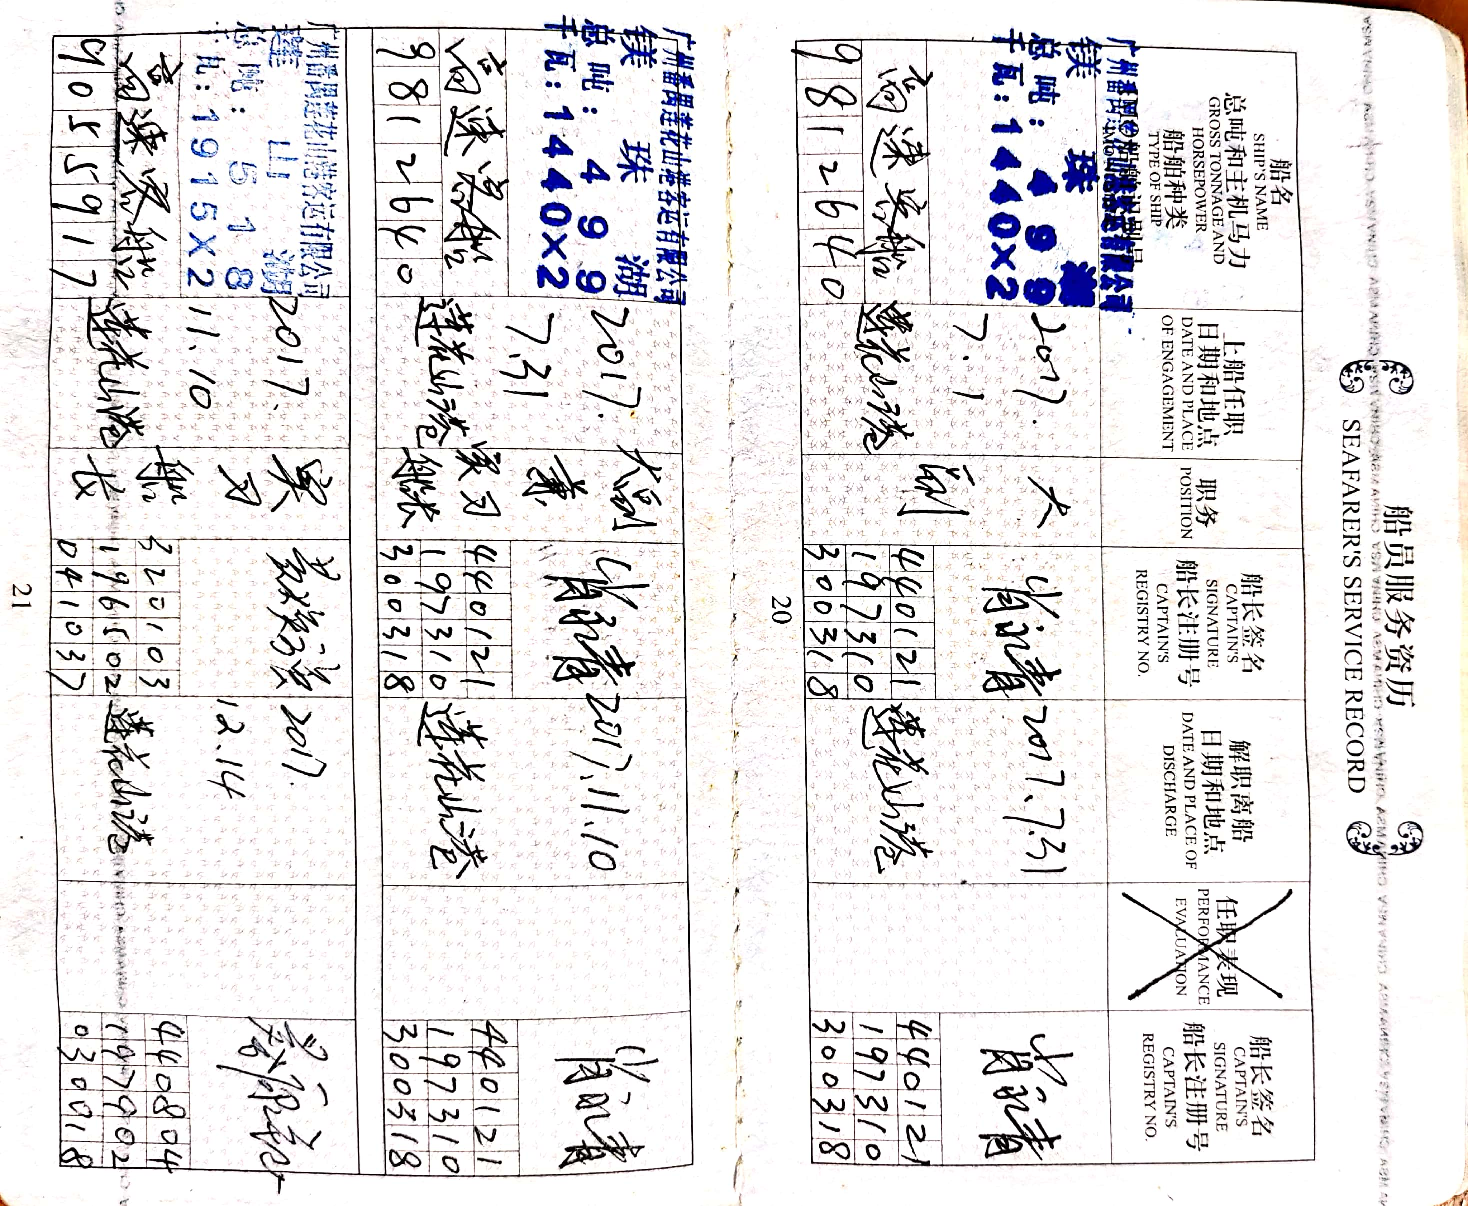 船员服务资历
SEAFARER'S SERVICE RECORD
船名
SHIP'S NAME
总吨和主机马力
GROSS TONNAGE AND
HORSEPOWER
船舶种类
TYPE OF SHIP
上船任职
日期和地点
DATE AND PLACE
OF ENGAGEMENT
职务
POSITION
船长签名
CAPTAIN'S
SIGNATURE
船长注册号
CAPTAIN'S
REGISTRY NO.
解职离船
日期和地点
DATE AND PLACE OF
DISCHARGE
任职表现
PERFORMANCE
EVALUATION
船长签名
CAPTAIN'S
SIGNATURE
船长注册号
CAPTAIN'S
REGISTRY NO.
镁 珠 湖
总吨:499
千瓦:1440×2
高速客船
9812640
2017.
7.1
莲花山港
大
副
440121
197310
300318
2017.7.31
莲花山港
440121
197310
300318
20
广州番禺莲花山港客运有限公司
镁 珠 湖
总吨:499
千瓦:1440×2
高速客船
9812640
2017.
7.31
莲花山港
大副
兼
实习
船长
440121
197310
300318
2017.11.10
莲花山港
440121
197310
300318
广州番禺莲花山港客运有限公司
莲 山 湖
总吨:518
千瓦:1915×2
高速客船
9055917
2017.
11.10
莲花山港
实
习
船
长
320103
196502
041037
2017.
12.14
莲花山港
440804
197902
030018
21